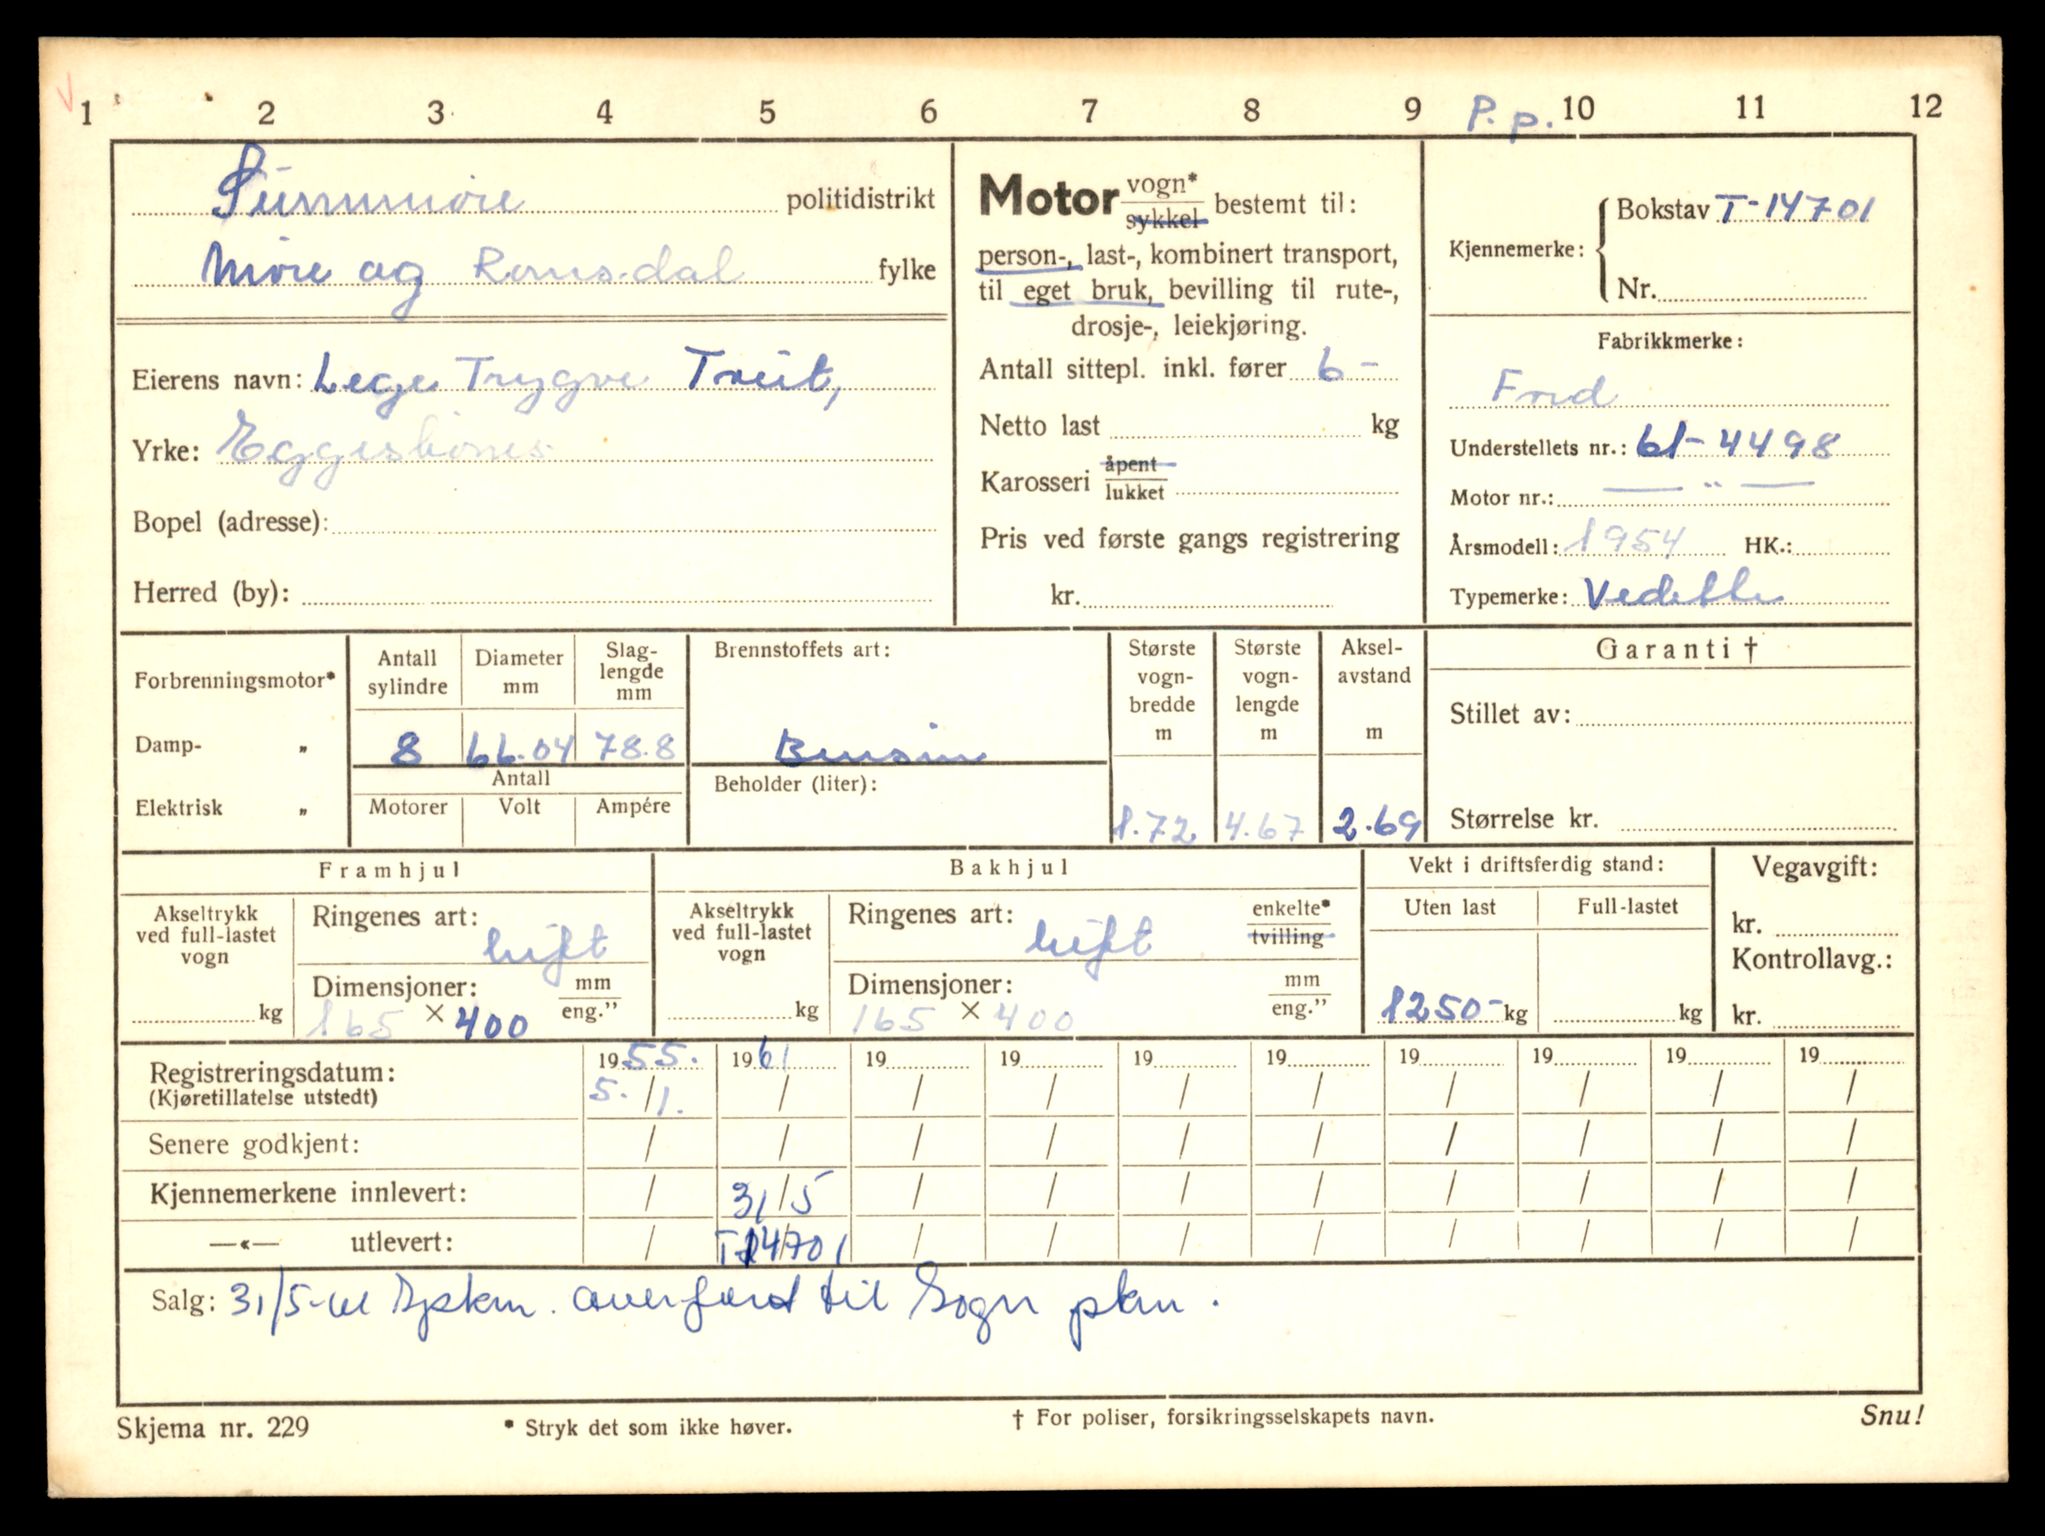 1 2 3 4 5 6 7 8 9 P.p. 10 11 12
Sunnmøre politidistrikt
Møre og Romsdal fylke
Eierens navn: Lege Trygve Tveit,
Yrke: Eggesbønes
Bopel (adresse):
Herred (by):
Motor vogn* / sykkel bestemt til:
person-, last-, kombinert transport,
til eget bruk, bevilling til rute-,
drosje-, leiekjøring.
Antall sittepl. inkl. fører 6-
Netto last kg
Karosseri åpent / lukket
Pris ved første gangs registrering
kr.
Kjennemerke: Bokstav T-14701
Nr.
Fabrikkmerke:
Ford
Understellets nr.: 61-4498
Motor nr.: — " —
Årsmodell: 1954 HK.:
Typemerke: Vedette
Forbrenningsmotor*
Damp- "
Elektrisk "
Antall sylindre
Diameter mm
Slag-lengde mm
8 66.04 78.8
Antall
Motorer Volt Ampére
Brennstoffets art:
Bensin
Beholder (liter):
Største vogn-bredde m
1.72
Største vogn-lengde m
4.67
Aksel-avstand m
2.69
Garanti †
Stillet av:
Størrelse kr.
Framhjul
Akseltrykk
ved full-lastet
vogn
kg
Ringenes art:
luft
Dimensjoner: mm / eng."
165 × 400
Bakhjul
Akseltrykk
ved full-lastet
vogn
kg
Ringenes art: enkelte* / tvilling
luft
Dimensjoner: mm / eng."
165 × 400
Vekt i driftsferdig stand:
Uten last Full-lastet
1250- kg kg
Vegavgift:
kr.
Kontrollavg.:
kr.
Registreringsdatum: 1955. 1961 19 19 19 19 19 19 19 19
(Kjøretillatelse utstedt) 5./1. / / / / / / / / /
Senere godkjent: / / / / / / / / / /
Kjennemerkene innlevert: / 31/5 / / / / / / / /
—«— utlevert: / T-14701 / / / / / / / /
Salg: 31/5-61 overført til Sogn
Skjema nr. 229 * Stryk det som ikke høver. † For poliser, forsikringsselskapets navn. Snu!